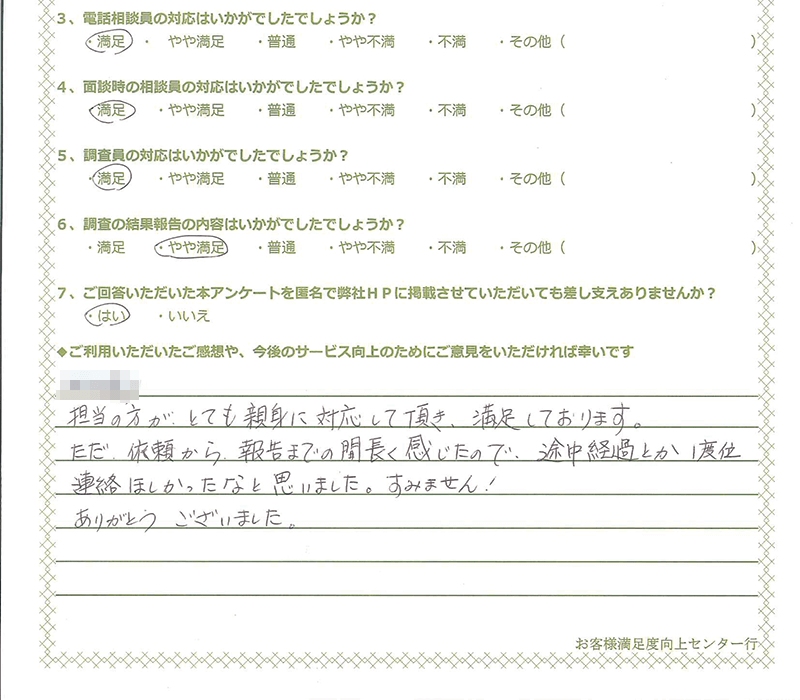 3、電話相談員の対応はいかがでしたでしょうか？
・満足 ・ やや満足 ・普通 ・やや不満 ・不満 ・その他（ ）
4、面談時の相談員の対応はいかがでしたでしょうか？
満足 ・やや満足 ・普通 ・やや不満 ・不満 ・その他（ ）
5、調査員の対応はいかがでしたでしょうか？
・満足 ・やや満足 ・普通 ・やや不満 ・不満 ・その他（ ）
6、調査の結果報告の内容はいかがでしたでしょうか？
・満足 ・やや満足 ・普通 ・やや不満 ・不満 ・その他（ ）
7、ご回答いただいた本アンケートを匿名で弊社ＨＰに掲載させていただいても差し支えありませんか？
・はい ・いいえ
◆ご利用いただいたご感想や、今後のサービス向上のためにご意見をいただければ幸いです
担当の方が、とても親身に対応して頂き、満足しております。
ただ、依頼から、報告までの間長く感じたので、途中経過とか1度位
連絡ほしかったなと思いました。すみません！
ありがとうございました。
お客様満足度向上センター行